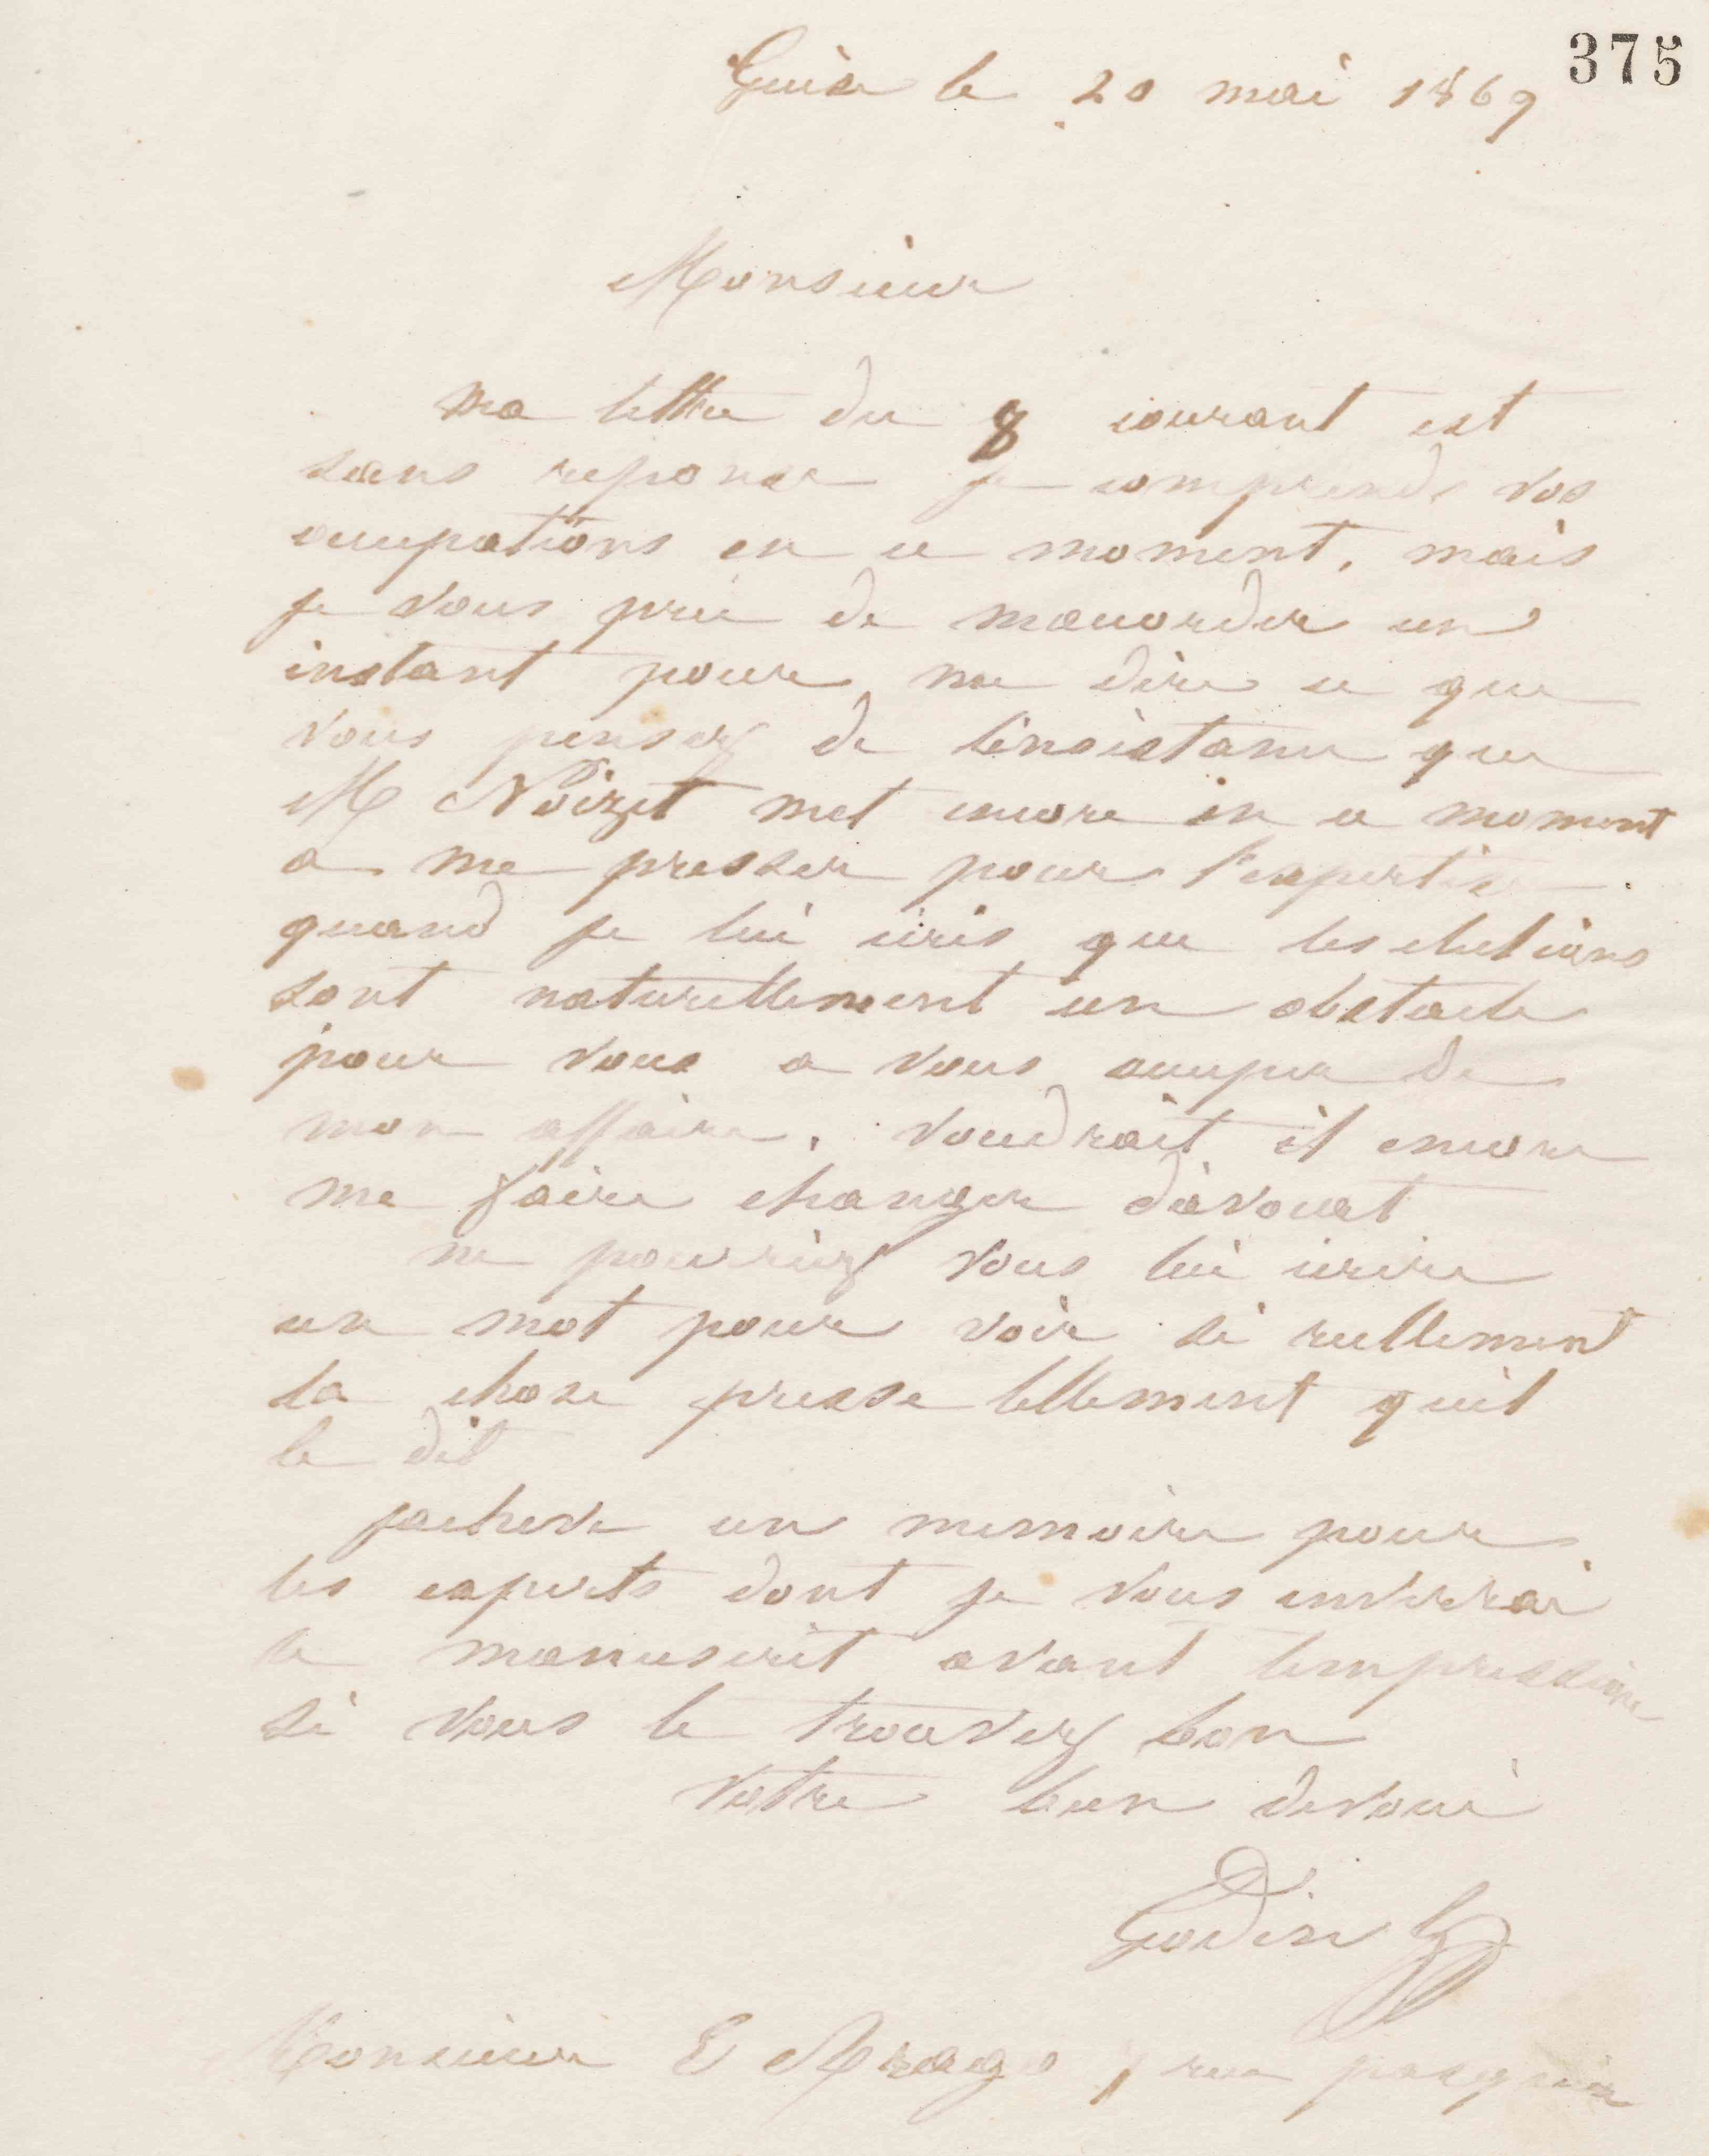 375
Guise le 20 mai 1869
Monsieur
Ma lettre du 8 courant est
sans reponse je comprends vos
occupations en ce moment, mais
je vous prie de maccorder un
instant pour me dire ce que
vous pensez de linsistance que
M Noizet met encore en ce moment
a me presser pour l'expertise.
quand je lui ecris que les elections
sont naturellement un obstacle
pour vous a vous occuper de
mon affaire, voudrait il encore
me faire changer d'avocat
ne pourriez vous lui ecrire
un mot pour voir si reellement
la chose presse tellement quil
le dit
jacheve un memoire pour
les experts dont je vous enverrai
le manuscrit avant limpression
si vous le trouvez bon
votre bien devoué
Godin
Monsieur E Arago, rue pasquier